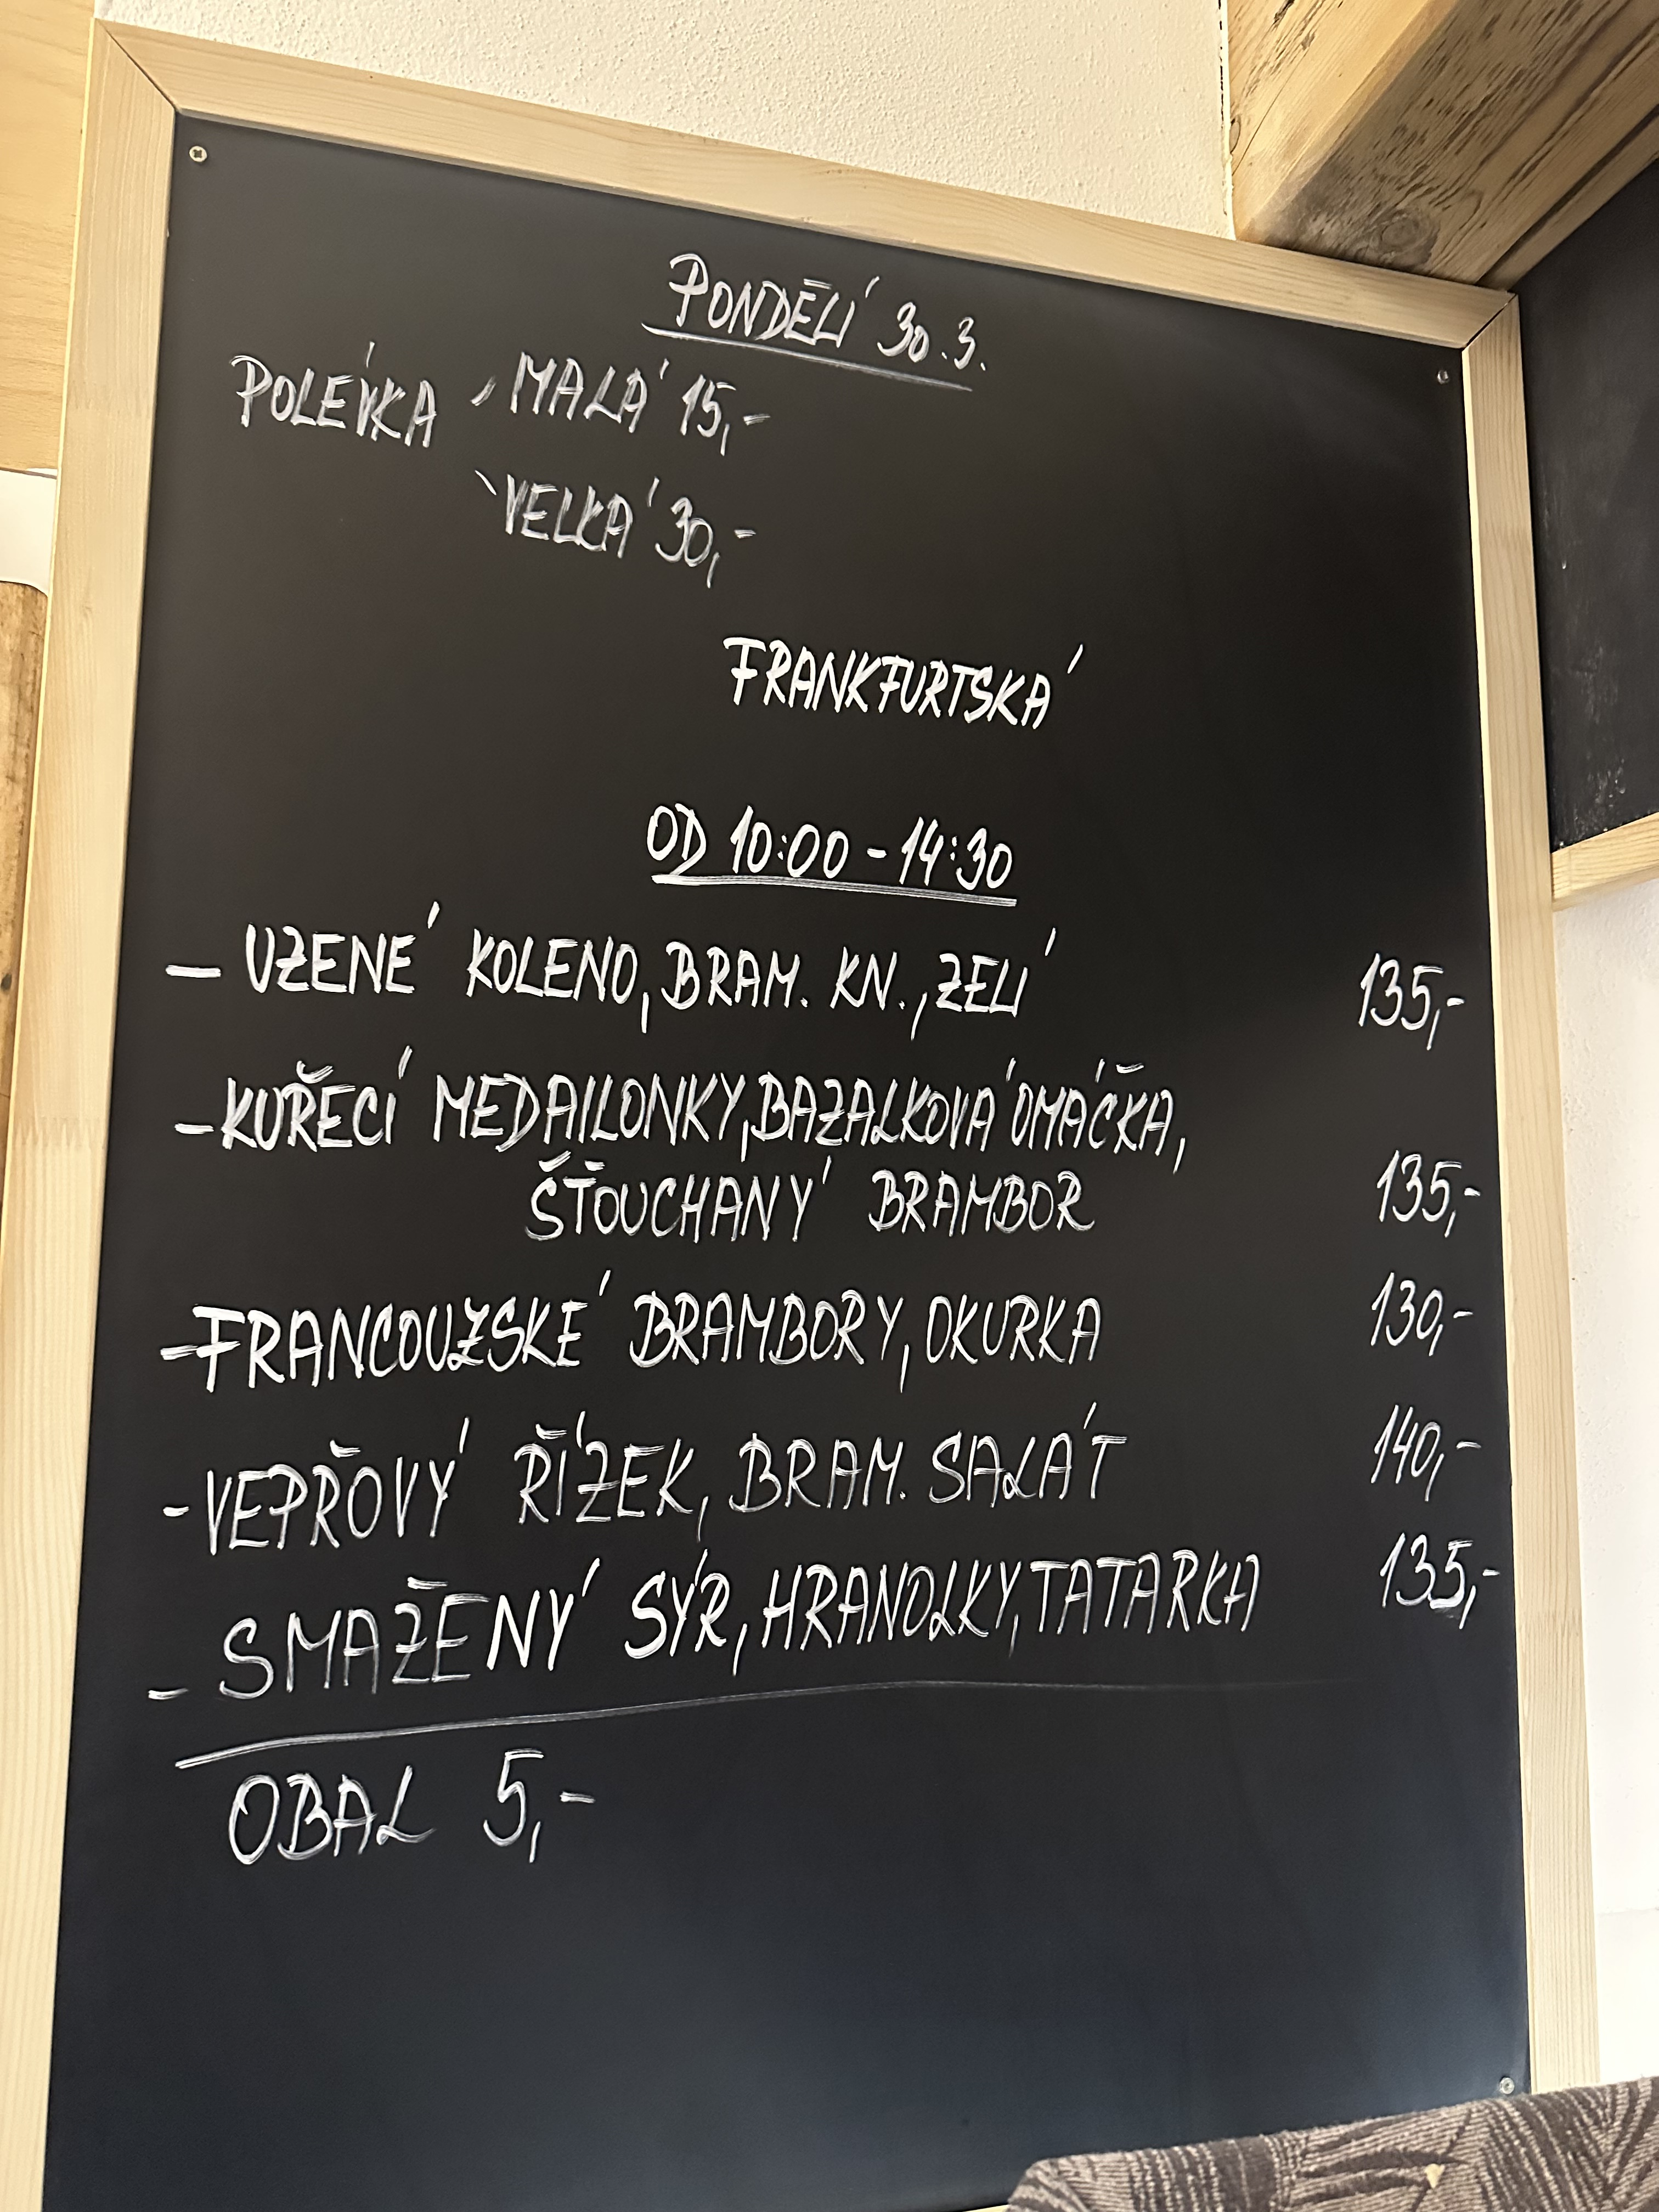 PONDĚLÍ 30.3.
POLÉVKA - MALÁ 15,-
- VELKÁ 30,-
FRANKFURTSKÁ
OD 10:00 - 14:30
- UZENÉ KOLENO, BRAM. KN., ZELÍ 135,-
- KUŘECÍ MEDAILONKY, BAZALKOVÁ OMÁČKA,
ŠŤOUCHANÝ BRAMBOR 135,-
- FRANCOUZSKÉ BRAMBORY, OKURKA 130,-
- VEPŘOVÝ ŘÍZEK, BRAM. SALÁT 140,-
- SMAŽENÝ SÝR, HRANOLKY, TATARKA 135,-
OBAL 5,-